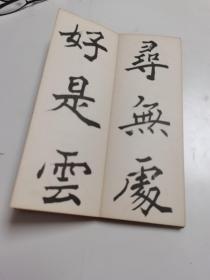 尋無處
好是雲